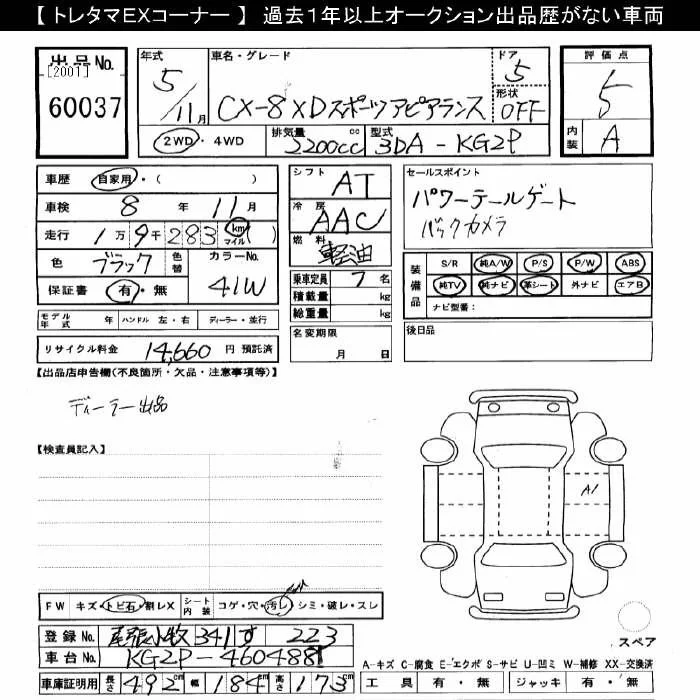 【トレタマEXコーナー】 過去1年以上オークション出品歴がない車両
出品No. [2001] 60037
年式 5/11月
車名・グレード CX-8 XDスポーツアピアランス
ドア 5
形状 OFF
評価点 5
内装 A
2WD・4WD
排気量 2200cc cc
型式 3DA-KG2P
車歴 自家用・( )
車検 8年 11月
走行 1万9千283 (km マイル)
色 ブラック 色替 カラーNo. 41W
保証書 有・無
モデル年式 年 ハンドル 左・右 ディーラー・並行
リサイクル料金 14,660 円 預託済
シフト AT
冷房 AAC
燃料 軽油
乗車定員 7名
積載量 kg
総重量 kg
名変期限 月 日
セールスポイント
パワーテールゲート
バックカメラ
装備品 S/R 純A/W P/S P/W ABS
純TV 純ナビ 革シート 外ナビ エアB
ナビ型番:
後日品
【出品店申告欄(不良箇所・欠品・注意事項等)】
ディーラー出品
【検査員記入】
A1
FW キズ・トビ石・割レX シート内装 コゲ・穴・汚レ・シミ・破レ・スレ
スペア
登録No. 尾張小牧 341 す 223
車台No. KG2P-460488
A-キズ C-腐食 E-エクボ S-サビ U-凹ミ W-補修 XX-交換済
車庫証明用 長さ 492cm 幅 184cm 高さ 173cm
工具 有・無 ジャッキ 有・無